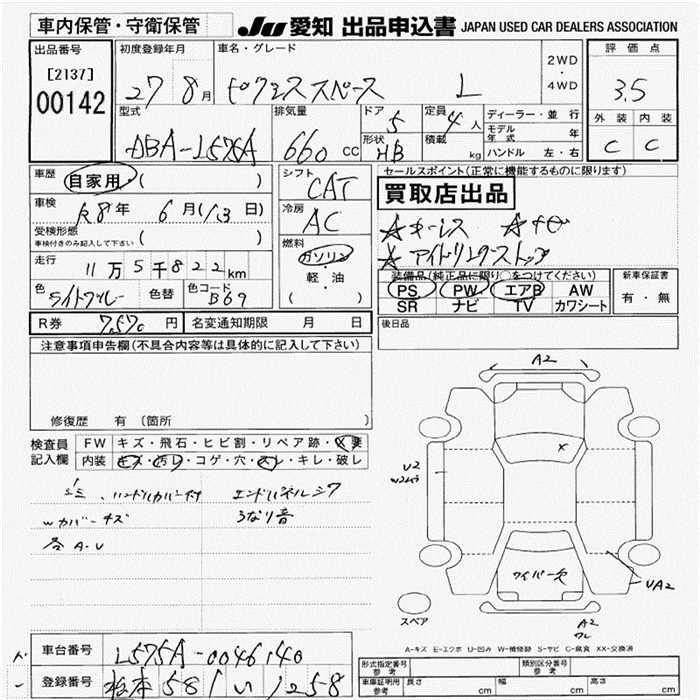 車内保管・守衛保管
JU 愛知 出品申込書 JAPAN USED CAR DEALERS ASSOCIATION
出品番号
[2137]
00142
初度登録年月
27 8月
車名・グレード
L
2WD
・
4WD
評価点
3.5
外装 内装
C C
型式
DBA-L575A
排気量
660 cc
ドア
5
形状
HB
定員
4人
積載
kg
ディーラー・並行
モデル年式 年
ハンドル 左・右
車歴
自家用 ( )
車検
R8年 6月(13日)
受検形態
車検付きのみ記入して下さい ( )
走行
11万5千822km
色
色替
色コード
B69
シフト
CAT
冷房
AC
燃料
ガソリン
・
軽・油
( )
セールスポイント(正常に機能するものに限ります)
買取店出品
☆キーレス ☆ナビ
☆アイドリングストップ
装備品(純正品に限り〇をつけてください)
PS PW エアB AW
SR ナビ TV カワシート
新車保証書
有・無
R券 7,570円
名変通知期限 月 日
後日品
注意事項申告欄(不具合内容等は具体的に記入して下さい)
修復歴 有 〔箇所 〕
検査員
記入欄
FW キズ・飛石・ヒビ割・リペア跡・
内装 キズ・汚レ・コゲ・穴・スレ・キレ・破レ
ハンドルカバー付
Wカバーキズ
各A・U
うなり音
A2
X
U2
ワイパー欠
UA2
A2
スペア
A-キズ E-エクボ U-凹み W-補修跡 S-サビ C-腐食 XX-交換済
車台番号 L575A-0046140
登録番号 松本 581 い 1258
形式指定番号
参考
類別区分番号
参考
車庫証明用
参考
長さ cm
幅 cm
高さ cm